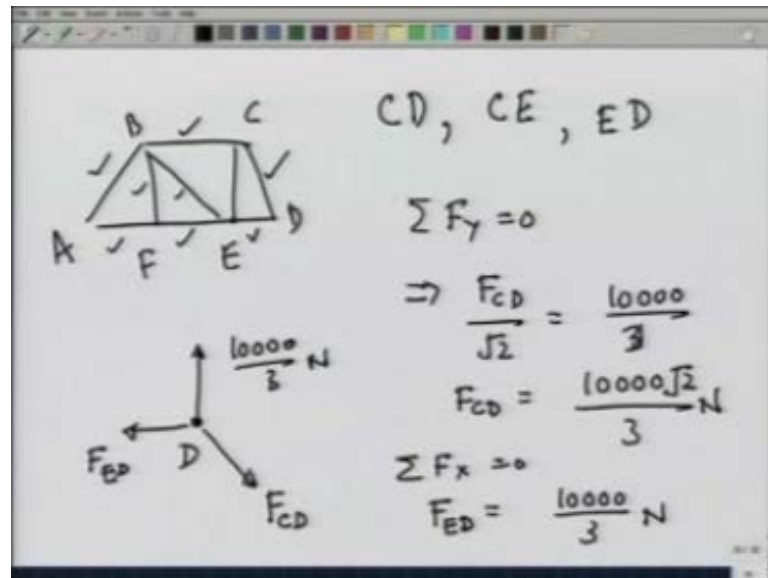 CD, CE, ED
B C
A F E D
ΣF_y = 0
⇒ F_CD/√2 = 10000/3
F_CD = 10000√2/3 N
ΣF_x = 0
F_ED = 10000/3 N
10000/3 N
F_ED D
F_CD